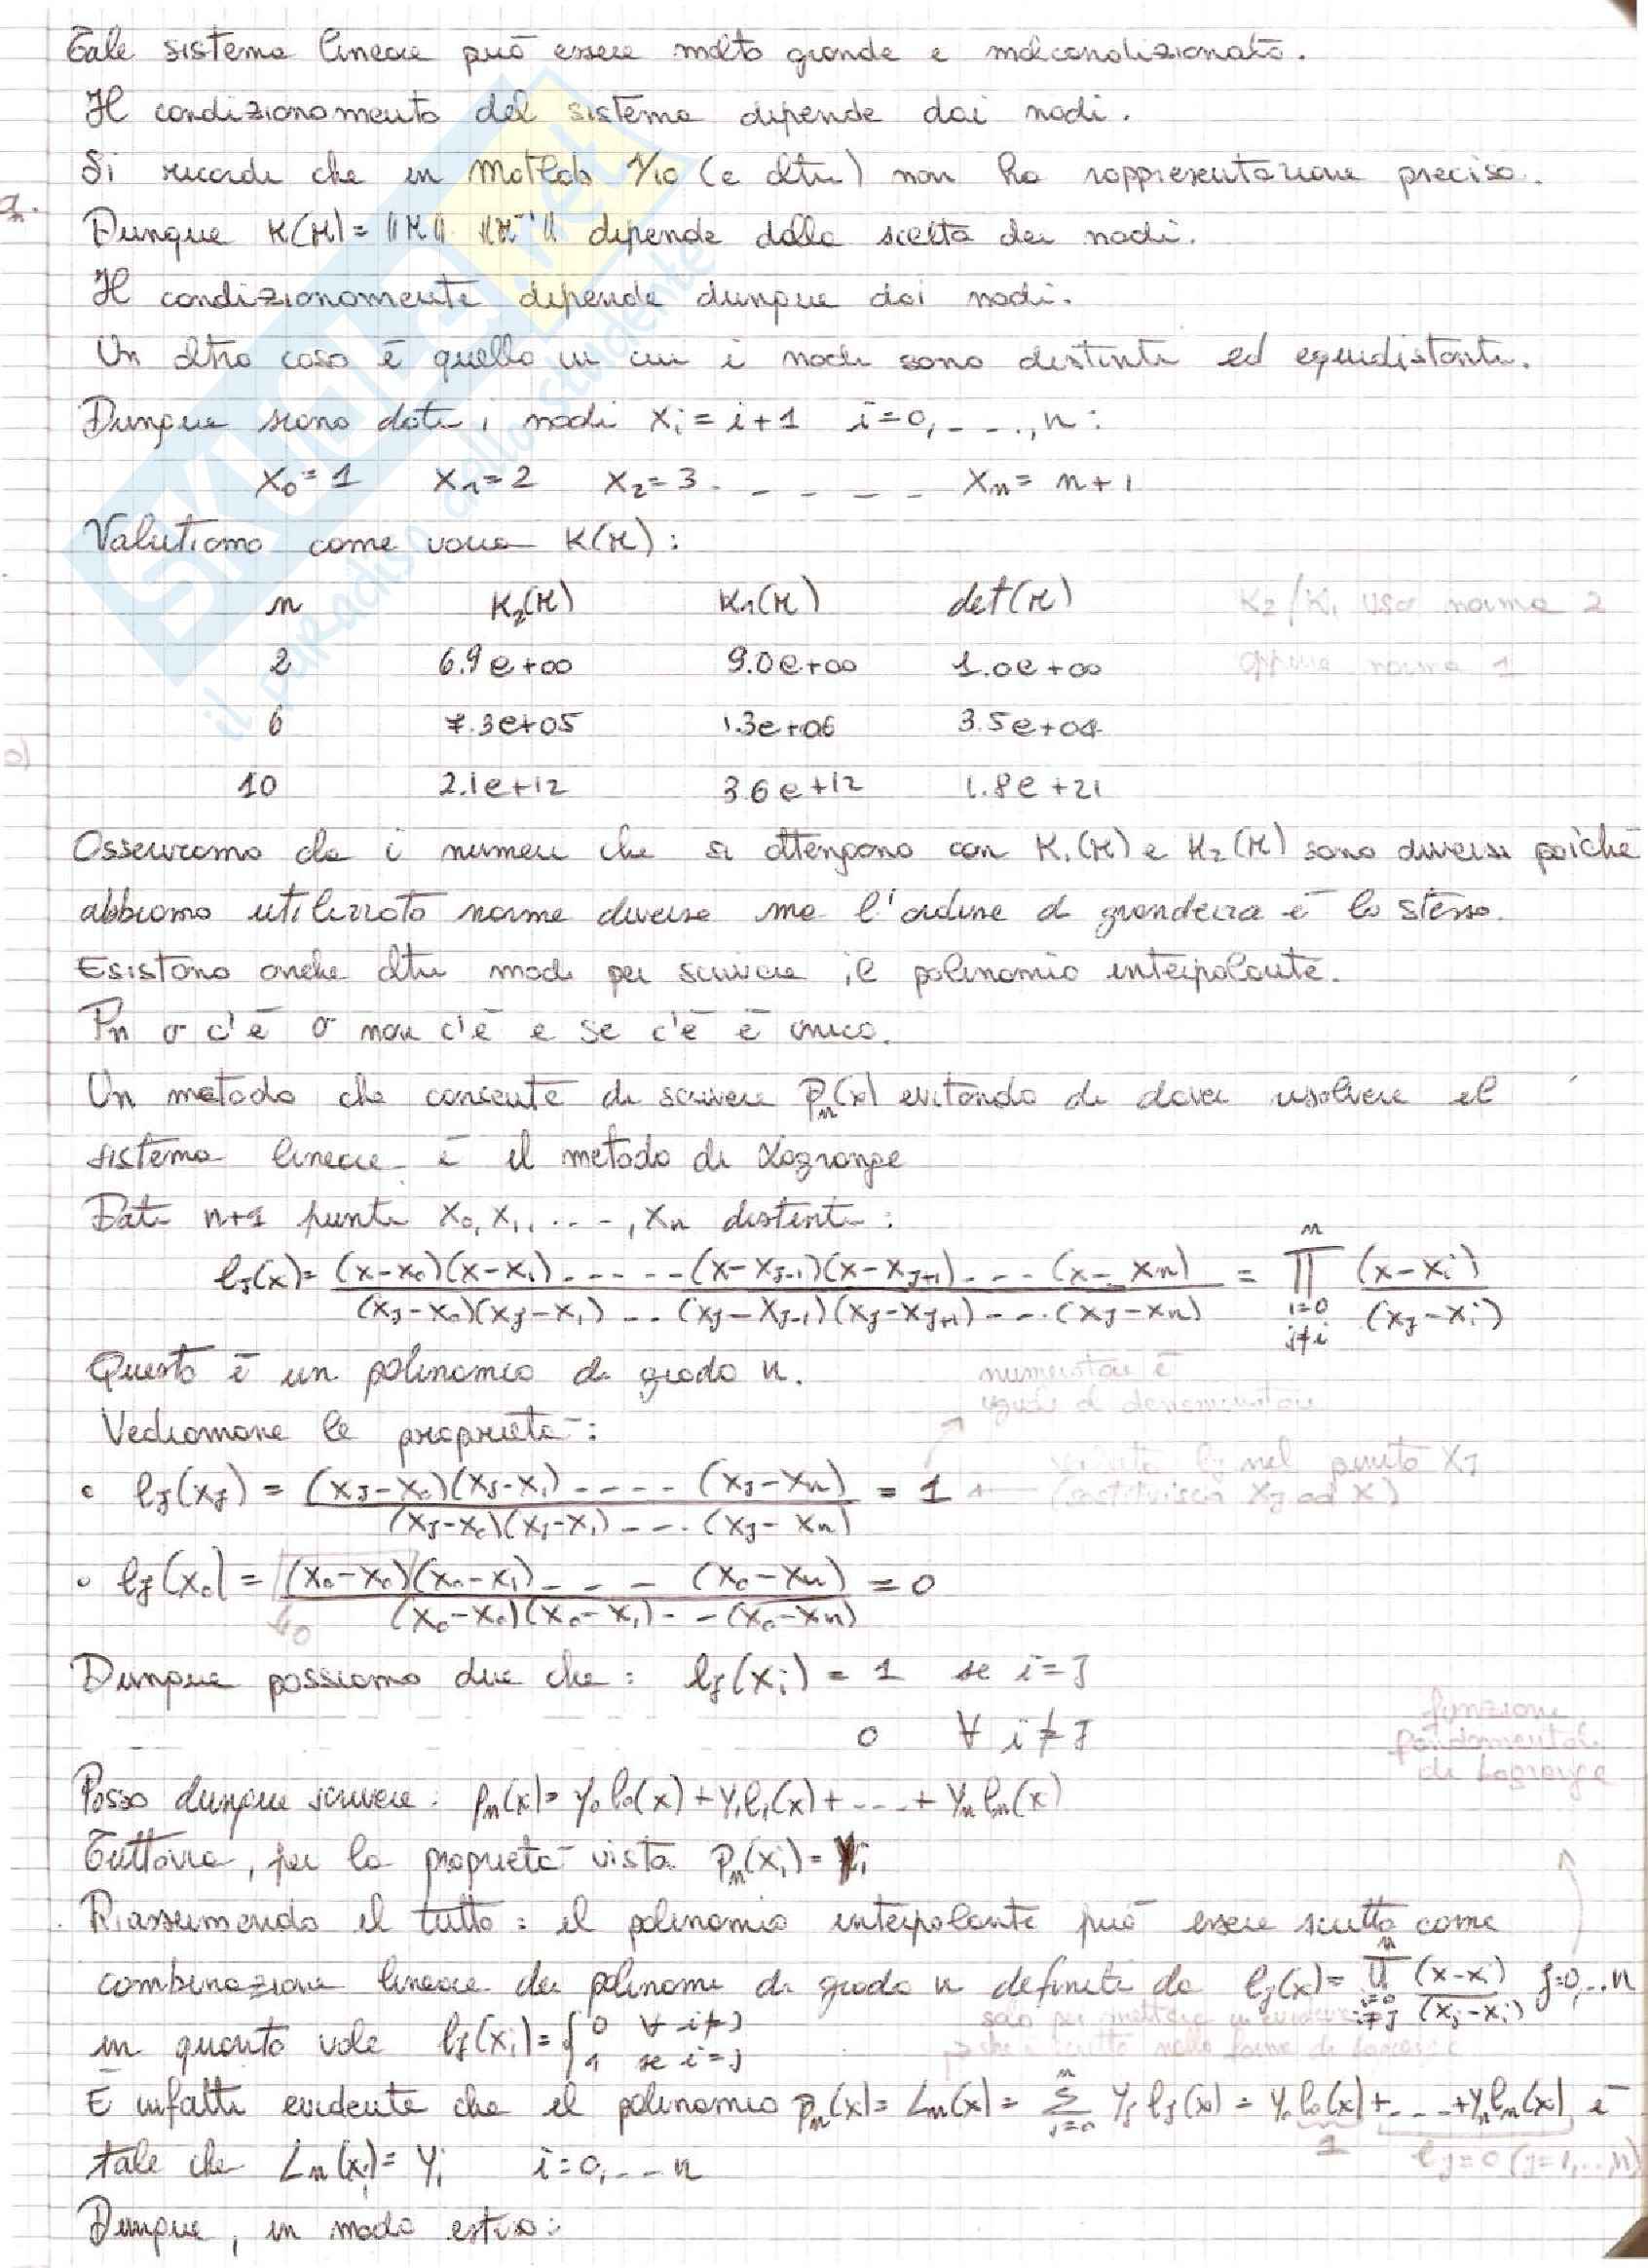 Tale sistema lineare può essere molto grande e malcondizionato.
Il condizionamento del sistema dipende dai nodi.
Si ricorda che in Matlab 1/10 (e altri) non ha rappresentazione precisa.
Dunque K(M)= ||M|| ||M⁻¹|| dipende dalla scelta dei nodi.
Il condizionamento dipende dunque dai nodi.
Un altro caso è quello in cui i nodi sono distinti ed equidistanti.
Dunque siano dati i nodi xᵢ = i+1 i=0,....,n:
x₀=1 x₁=2 x₂=3 - - - - - xₙ= n+1
Valutiamo come varia K(M):
n K₂(M) K₁(M) det(M) K₂/K₁ usa norma 2
2 6.9e+00 9.0e+00 1.0e+00 oppure norma 1
6 7.3e+05 1.3e+06 3.5e+04
10 2.1e+12 3.6e+12 1.8e+21
Osserviamo che i numeri che si ottengono con K₁(M) e K₂(M) sono diversi poiché
abbiamo utilizzato norme diverse ma l'ordine di grandezza è lo stesso.
Esistono anche altri modi per scrivere il polinomio interpolante.
Pₙ o c'è o non c'è e se c'è è unico.
Un metodo che consente di scrivere Pₙ(x) evitando di dover risolvere il
sistema lineare è il metodo di Lagrange
Dati n+1 punti x₀,x₁,...-,xₙ distinti:
lⱼ(x)= (x-x₀)(x-x₁)------(x-xⱼ₋₁)(x-xⱼ₊₁)---(x-xₙ) / (xⱼ-x₀)(xⱼ-x₁)...(xⱼ-xⱼ₋₁)(xⱼ-xⱼ₊₁)----(xⱼ-xₙ) = ∏ n i=0 j≠i (x-xᵢ) / (xⱼ-xᵢ)
Questo è un polinomio di grado n. numeratore è
Vediamone le proprietà: uguale al denominatore
• lⱼ(xⱼ) = (xⱼ-x₀)(xⱼ-x₁)-----(xⱼ-xₙ) / (xⱼ-x₀)(xⱼ-x₁)---(xⱼ-xₙ) = 1 ← valuto lⱼ nel punto xⱼ
(sostituisco xⱼ ad x)
• lⱼ(x₀) = (x₀-x₀)(x₀-x₁)---(x₀-xₙ) / (x₀-x₀)(x₀-x₁)--(x₀-xₙ) = 0
↓0
Dunque possiamo dire che: lⱼ(xᵢ) = 1 se i=j
0 ∀ i≠j
funzione
fondamentale
di Lagrange
Posso dunque scrivere: pₙ(x)= y₀l₀(x)+y₁l₁(x)+....+yₙlₙ(x)
Tuttavia, per la proprietà vista Pₙ(xᵢ)=yᵢ
Riassumendo il tutto: il polinomio interpolante può essere scritto come
combinazione lineare dei polinomi di grado n definiti da lⱼ(x)= ∏ n i=0 i≠j (x-xᵢ) / (xⱼ-xᵢ) j=0,..n
in quanto vale lⱼ(xᵢ)={ 0 ∀ i≠j
1 se i=j
solo per mettere in evidenza
che è scritto nella forma di Lagrange
È infatti evidente che il polinomio pₙ(x)= Lₙ(x)= Σ n j=0 yⱼ lⱼ(x) = y₀l₀(x)+....+yₙlₙ(x) è
1 lⱼ=0 (j=1,..,n)
tale che Lₙ(xᵢ)= yᵢ i=0,...n
Dunque, in modo esteso:
SKUOLA.net
il paradiso dello studente